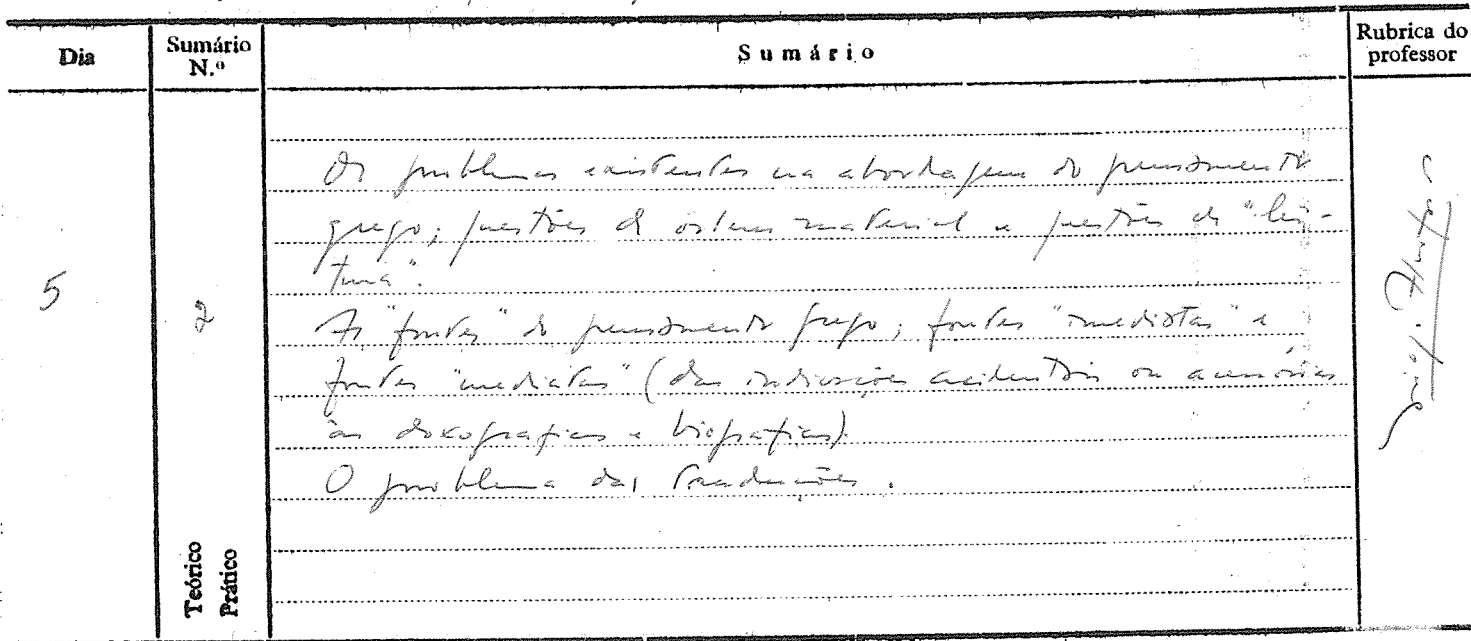 Dia
Sumário N.º
Sumário
Rubrica do professor
5
2
Os problemas existentes na abordagem do pensamento
grego; questões de ordem material e questões de "lei-
tura".
As "fontes" do pensamento grego; fontes "imediatas" e
fontes "mediatas" (das indicações acidentais ou acessórias
às doxografias e biografias).
O problema das traduções.
Teórico
Prático